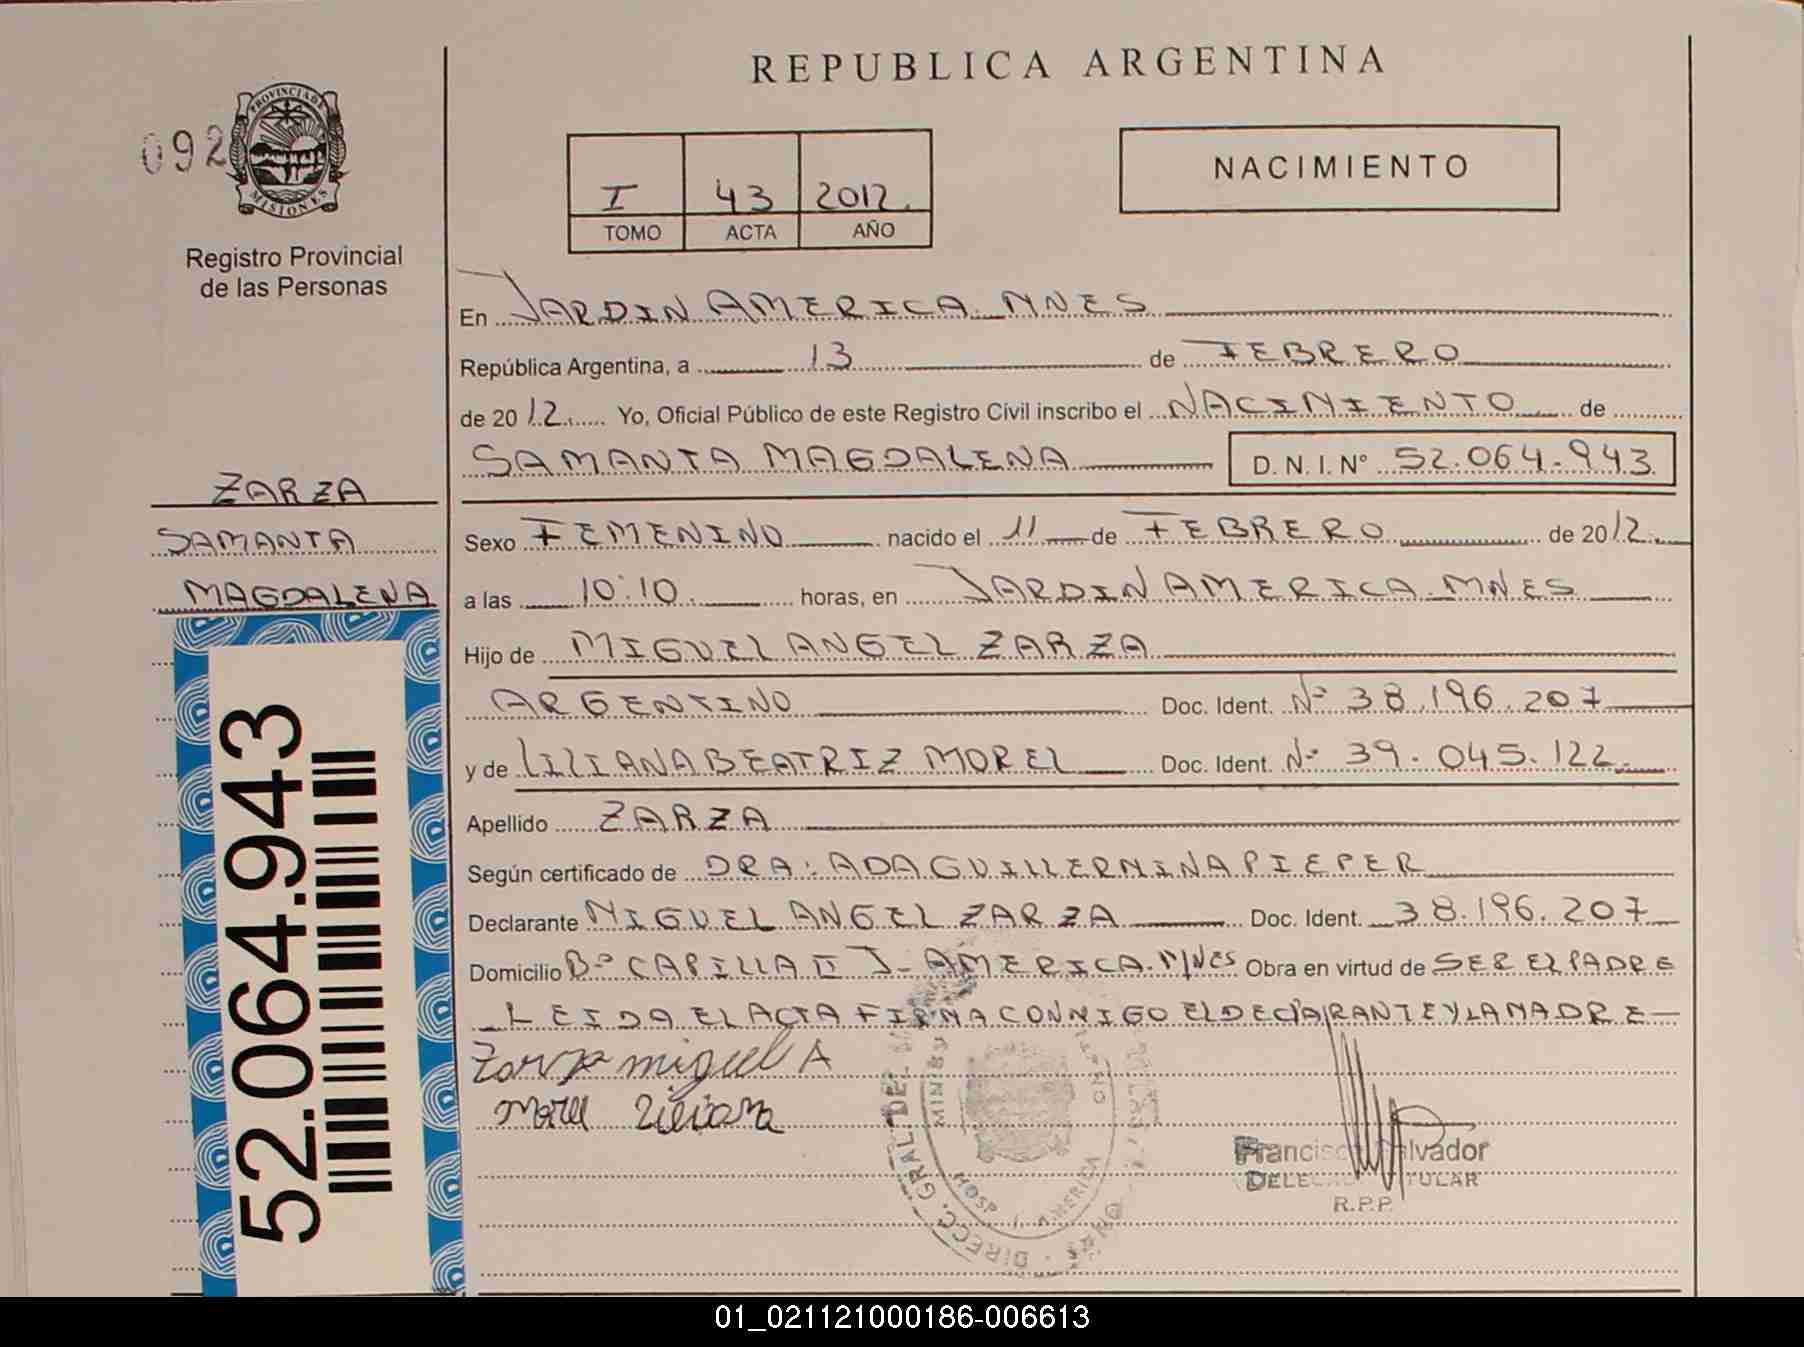 REPUBLICA ARGENTINA
092
PROVINCIA DE
MISIONES
Registro Provincial
de las Personas
I 43 2012.
TOMO ACTA AÑO
NACIMIENTO
En JARDIN AMERICA. MNES
República Argentina, a 13 de FEBRERO
de 2012. Yo, Oficial Público de este Registro Civil inscribo el NACIMIENTO de
SAMANTA MAGDALENA D.N.I.Nº 52.064.943
ZARZA
SAMANTA
MAGDALENA
Sexo FEMENINO nacido el 11 de FEBRERO de 2012.
a las 10:10. horas, en JARDIN AMERICA. MNES
Hijo de MIGUEL ANGEL ZARZA
ARGENTINO Doc. Ident. Nº 38.196.207
y de LILIANA BEATRIZ MOREL Doc. Ident. Nº 39.045.122.
Apellido ZARZA
Según certificado de DRA: ADA GUILLERMINA PIEPER
Declarante MIGUEL ANGEL ZARZA Doc. Ident. 38.196.207
Domicilio Bº CAPILLA II J. AMERICA. M/NES Obra en virtud de SER EL PADRE
LEIDA EL ACTA FIRMA CONMIGO EL DECLARANTE Y LA MADRE
Zarza miguel A
Morel Liliana
52.064.943
DIRECC. GRAL. DE
AMERICA
Francisco Salvador
TITULAR
R.P.P.
01_021121000186-006613